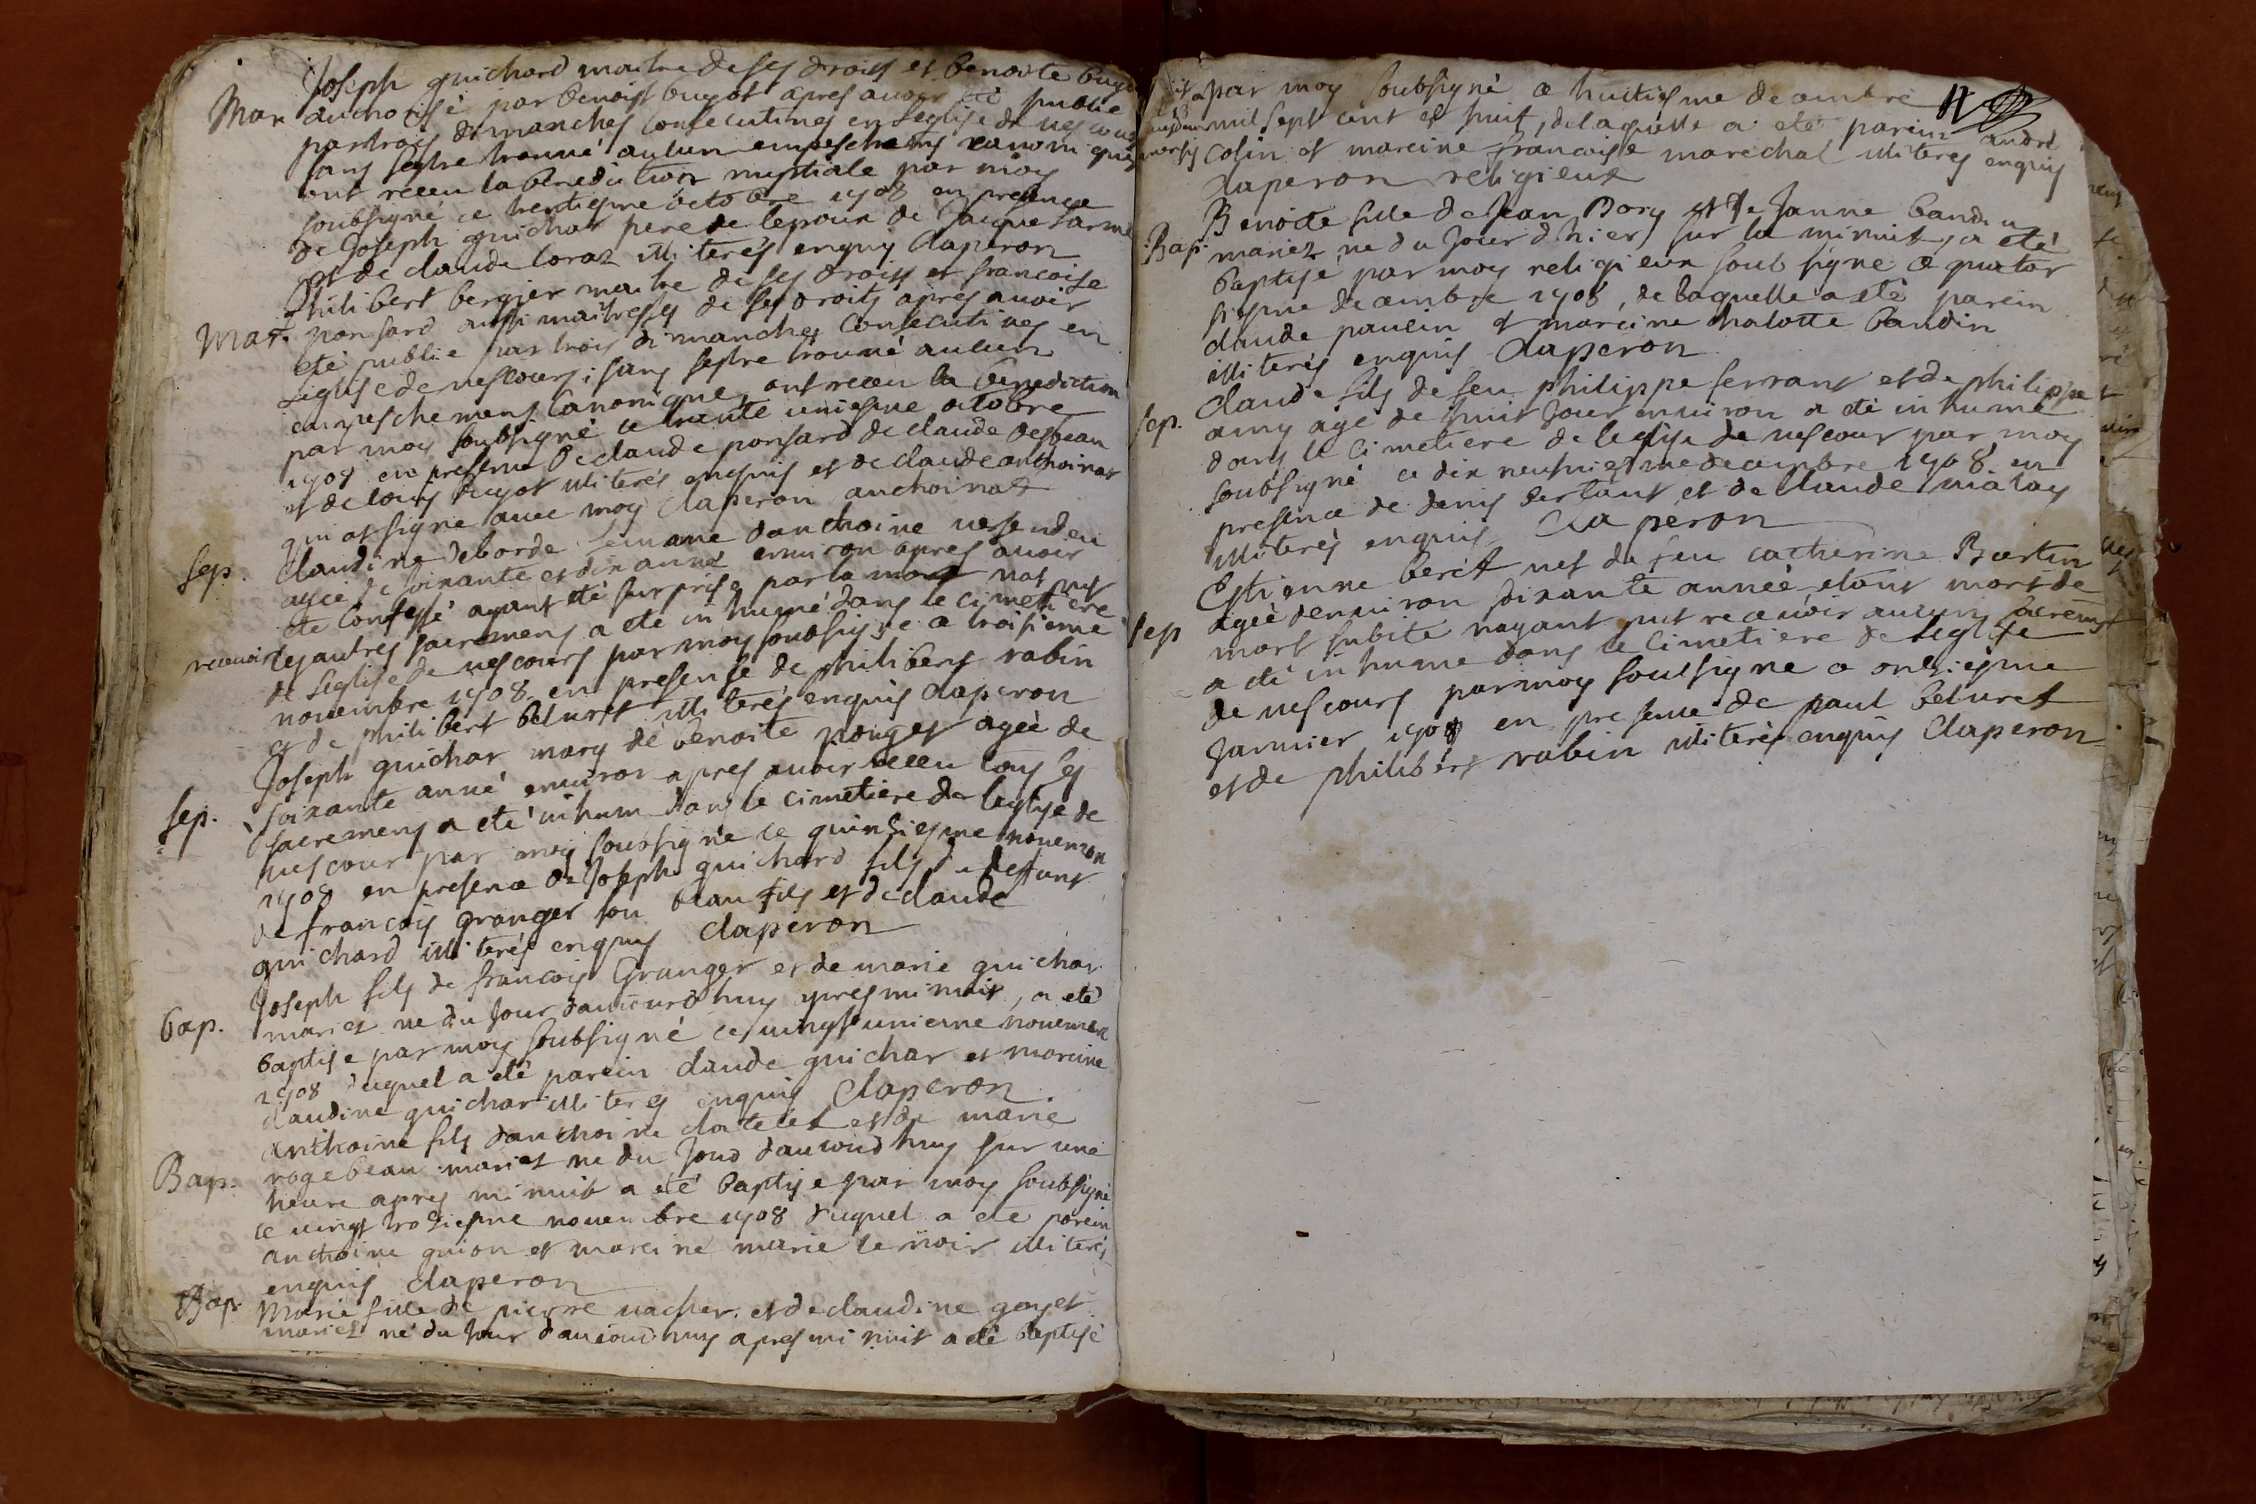 Joseph guichard maitre de ses droits et benoite bugot
Mar. authorisé par benoist bugot apres avoir été publié
par trois dimanches consecutives en leglise de uescours
sans sestre trouué aulcun empeschems canoniques
ont receu la benediction nuptiale par moy
soubsigné ce trentiesme octobre 1708 en presence
de Joseph guichar pere de lepoux de Jacque
et de claude loraz illiterés enquis Claperon
Philibert bergier maitre de ses droits et francoise
Mar. ponsard aussi maitresse de ses droits apres auoir
eté publie par trois dimanches consecutives en
Leglise de uescours ; sans sestre trouué aulcun
empeschemens Canonique, ont receu la benediction
par moy soubsigné ce trente uniesme octobre
1708 en presence de claude ponsard de claude desbeau
et de louis bugot illiterés enquis et de claude anthoinat
qui at signe auec moy Claperon anthoinat
Sep. Claudine deborde femme danthoine
agée de soixante et dix année enuiron apres auoir
eté Confessé ayant eté surprise par la mort nat put
receuoir les autres sacremens a eté inhumé dans le cimetiere
de Leglise de uescours par moy soubsigne ce troisieme
nouembre 1708 en presense de philibers robin
et de philibert beluret illiterés enquis claperon
Joseph guichar mary de benoite ponget agée de
sep. soixante anné enuiron apres auoir receu tous les
sacremens a eté inhum dans le cimetiere de leglise de
uescour par moy soubsigné ce quinsiesme nouembre
1708 en presence de Joseph guichard fils du deffunt
de francois granger son beau fils et de claude
guichard illiterés enquis claperon
Joseph fils de francois Granger et de marie guichar
bap. mariez ne du Jour daujourdhuy apres minuit, a eté
baptise par moy soubsigné ce uingt unieme nouembre
1708 duquel a eté parein claude guichar et mareine
claudine guichar illiteres enquis Claperon
Anthoine fils danthoine clatelet et de marie
Bap. rogebeau mariez ne du Jour daujourdhuy sur une
heure apres minuit a eté baptise par moy soubsigné
ce uingt troisiesme nouembre 1708 duquel a eté parein
anthoine guion et mareine marie lenoir illiterés
enquis claperon
Bap. Marie fille de pierre uacher et de claudine goyet
mariez né du Jour daujourdhuy apres minuit a eté baptisé
par moy soubsigné ce huitiesme decembre
mil sept cent et huit, de laquelle a eté parein andré
Colin et mareine francoise marechal illiteres enquis
claperon religieux
Benoite fille de Jean Bory et de Janne baudin
Bap. mariez ne du Jour dhier sur la minuit, a eté
baptise par moy religieux soubsigne ce quator
siesme decembre 1708, de laquelle a eté parein
claude paulin et mareine chalotte baudin
illiterés enquis claperon
Claude fils de feu philippe ferrant et de philippe
sep. amy agé de huit Jour enuiron a eté inhumé
dans le cimetiere de leglise de uescour par moy
soubsigné ce dix neufuiesme decembre 1708 en
presence de denis et de Claude malay
illiterés enquis Claperon
Estienne berct uef de feu catherine Bertin
sep agée denuiron soixante année etant mort de
mort subite nayant put receuoir aucuns sacrems
a eté inhume dans le Cimetiere de Leglise
de uescours par moy soubsigne ce onsiesme
Januier 1708 en presence de paul beluret
et de philibert robin illiterés enquis Claperon